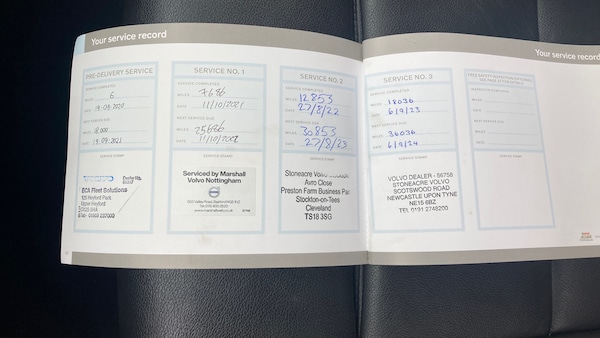 Your service record
Your service record
PRE-DELIVERY SERVICE
SERVICE COMPLETED
MILES 6
DATE
NEXT SERVICE DUE
MILES
DATE
SERVICE STAMP
BCA Fleet Solutions
Heyford Park
Upper Heyford
SERVICE NO. 1
SERVICE COMPLETED
MILES 7686
DATE 11/10/2021
NEXT SERVICE DUE
MILES 25686
DATE 11/10/2022
SERVICE STAMP
Serviced by Marshall
Volvo Nottingham
SERVICE NO. 2
SERVICE COMPLETED
MILES 12853
DATE 27/8/22
NEXT SERVICE DUE
MILES 30853
DATE 27/8/23
SERVICE STAMP
Stoneacre
Avro Close
Preston Farm Business Par
Stockton-on-Tees
Cleveland
TS18 3SG
SERVICE NO. 3
SERVICE COMPLETED
MILES 18036
DATE 6/9/23
NEXT SERVICE DUE
MILES 36036
DATE 6/9/24
SERVICE STAMP
VOLVO DEALER - 56758
STONEACRE VOLVO
SCOTSWOOD ROAD
NEWCASTLE UPON TYNE
NE15 6BZ
TEL 0191 2748200
SERVICE COMPLETED
MILES
DATE
NEXT SERVICE DUE
MILES
DATE
SERVICE STAMP